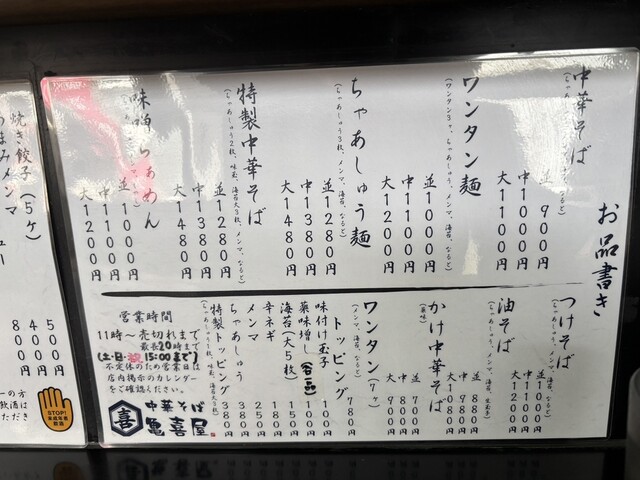 お品書き
中華そば
(ちゃあしゅう、メンマ、海苔、なると)
並 900円
中 1000円
大 1100円
ワンタン麺
(ワンタン3ヶ、ちゃあしゅう、メンマ、海苔、なると)
並 1000円
中 1100円
大 1200円
ちゃあしゅう麺
(ちゃあしゅう5枚、メンマ、海苔、なると)
並 1280円
中 1380円
大 1480円
特製中華そば
(ちゃあしゅう2枚、味玉、海苔大3枚、メンマ、なると)
並 1280円
中 1380円
大 1480円
味噌らぁめん
並 1000円
中 1100円
大 1200円
つけそば
(ちゃあしゅう、メンマ、海苔、なると)
並 1000円
中 1100円
大 1200円
油そば
並 880円
中 980円
大 1080円
かけ中華そば
(薬味)
並 700円
中 800円
大 900円
ワンタン(7ヶ)
(メンマ、海苔、なると)
780円
トッピング
味付け玉子 100円
薬味増し(各一品) 100円
海苔(大5枚) 150円
辛ネギ 180円
メンマ 250円
ちゃあしゅう 380円
特製トッピング 380円
営業時間
11時〜売切れまで
最長20時まで
(土・日・祝 15:00まで)
不定休のため営業日は
店内掲示のカレンダー
をご確認ください。
喜
中華そば
亀喜屋
焼き餃子(5ヶ)
つまみメンマ
500円
400円
800円
STOP!
未成年者
飲酒